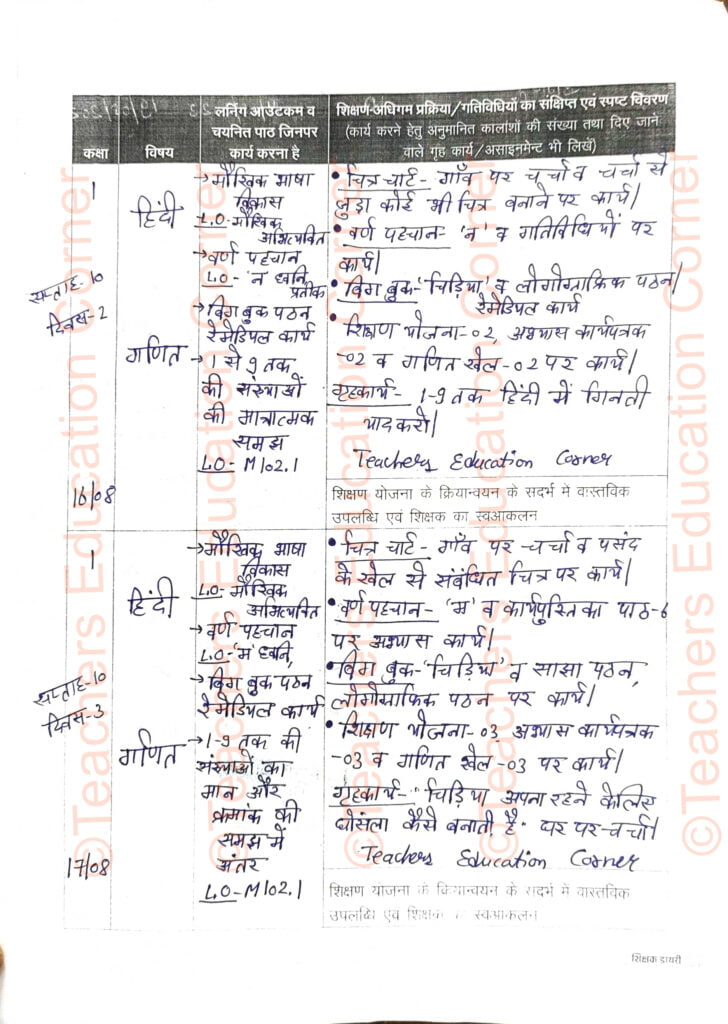 लर्निंग आउटकम व
चयनित पाठ जिनपर
कार्य करना है
शिक्षण-अधिगम प्रक्रिया/गतिविधियों का संक्षिप्त एवं स्पष्ट विवरण
(कार्य करने हेतु अनुमानित कालांशों की संख्या तथा दिए जाने
वाले गृह कार्य/असाइनमेंट भी लिखें)
कक्षा
विषय
1
सप्ताह-10
दिवस-2
16/08
हिंदी
→मौखिक भाषा
विकास
L.O-मौखिक
अभिव्यक्ति
→वर्ण पहचान
L.O-'न' ध्वनि,
प्रतीक
→बिग बुक पठन
रेमेडियल कार्य
• चित्र चार्ट- गाँव पर चर्चा व चर्चा से
जुड़ा कोई भी चित्र बनाने पर कार्य|
• वर्ण पहचान- 'न' व गतिविधियों पर
कार्य|
• बिग बुक-'चिड़िया' व लोगोग्राफिक पठन|
रेमेडियल कार्य
गणित
→1 से 9 तक
की संख्याओं
की मात्रात्मक
समझ
L.O-M102.1
• शिक्षण योजना-02, अभ्यास कार्यपत्रक
-02 व गणित खेल-02 पर कार्य|
गृहकार्य- 1-9 तक हिंदी में गिनती
याद करो|
Teachers Education Corner
शिक्षण योजना के क्रियान्वयन के सदर्भ मे वास्तविक
उपलब्धि एवं शिक्षक का स्वआकलन
1
सप्ताह-10
दिवस-3
17/08
हिंदी
→मौखिक भाषा
विकास
L.O-मौखिक
अभिव्यक्ति
→वर्ण पहचान
L.O-'म' ध्वनि,
→बिग बुक पठन
रेमेडियल कार्य
• चित्र चार्ट- गाँव पर चर्चा व पसंद
के खेल से संबंधित चित्र पर कार्य|
• वर्ण पहचान- 'म' व कार्यपुस्तिका पाठ-6
पर अभ्यास कार्य|
• बिग बुक-'चिड़िया' व साझा पठन,
लोगोग्राफिक पठन पर कार्य|
गणित
→1-9 तक की
संख्याओं का
मान और
क्रमांक की
समझ में
अंतर
L.O-M102.1
• शिक्षण योजना-03, अभ्यास कार्यपत्रक
-03 व गणित खेल-03 पर कार्य|
गृहकार्य- "चिड़िया अपना रहने के लिए
घोसंला कैसे बनाती है" पर चर्चा|
Teachers Education Corner
शिक्षण योजना के क्रियान्वयन के सदर्भ मे वास्तविक
उपलब्धि एवं शिक्षक स्वआकलन
शिक्षक डायरी
©Teachers Education Corner
©Teachers Education Corner
©Teachers Education Corner
©Teachers Education Corner